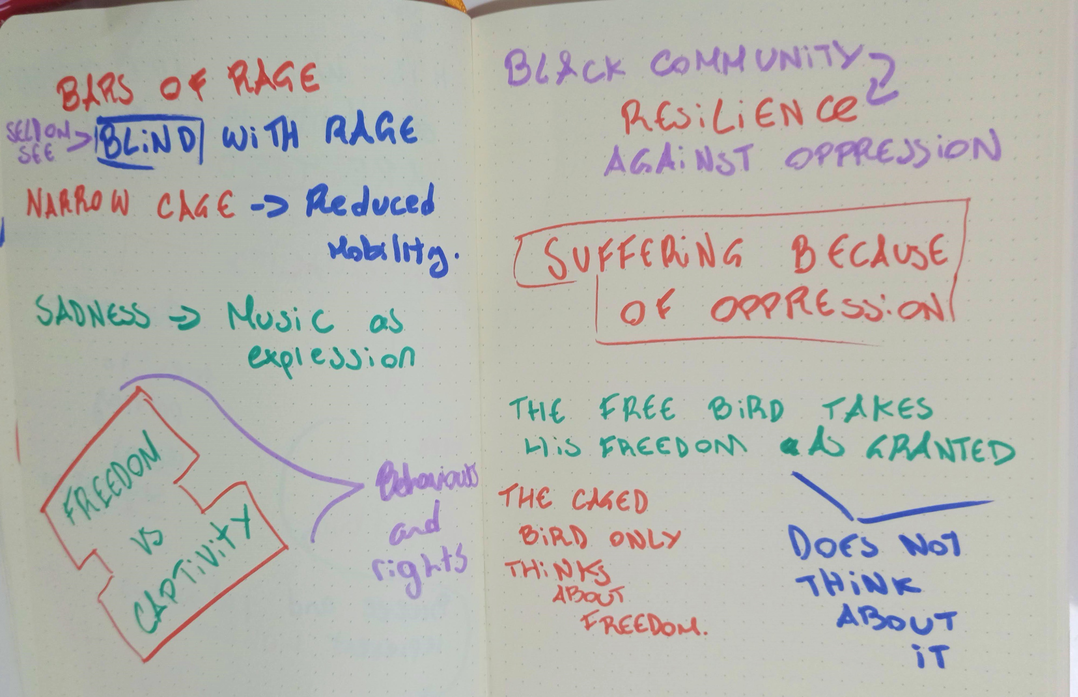 BARS OF RAGE
SELDOM
SEE -> BLIND WITH RAGE
NARROW CAGE -> Reduced
Mobility.
SADNESS -> Music as
explession
FREEDOM
VS
CAPTIVITY
Behaviours
and
rights
BLACK COMMUNITY
RESILIENCE
AGAINST OPPRESSION
SUFFERING BECAUSE
OF OPPRESSION
THE FREE BIRD TAKES
HIS FREEDOM AS GRANTED
THE CAGED
BIRD ONLY
THINKS
ABOUT
FREEDOM.
DOES NOT
THINK
ABOUT
IT